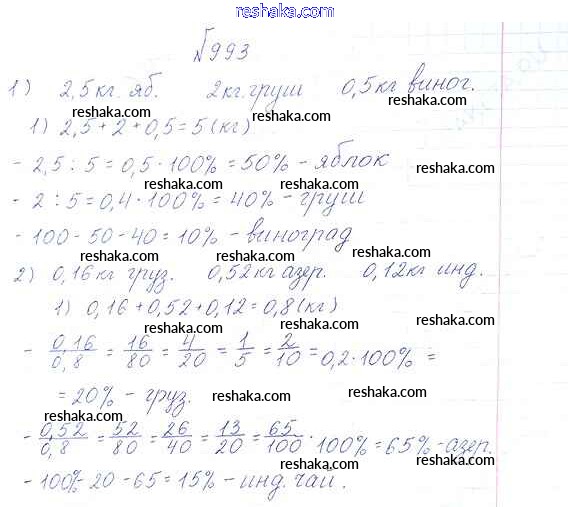 reshaka.com
№993
1) 2,5кг. яб. 2кг.груш 0,5кг виног.
reshaka.com reshaka.com
1) 2,5 + 2 + 0,5 = 5 (кг)
reshaka.com reshaka.com
- 2,5 : 5 = 0,5 · 100% = 50% - яблок
reshaka.com reshaka.com
- 2 : 5 = 0,4 · 100% = 40% - груш
reshaka.com reshaka.com
- 100 - 50 - 40 = 10% - виноград
reshaka.com reshaka.com
2) 0,16кг груз. 0,52кг азер. 0,12кг инд.
reshaka.com reshaka.com
1) 0,16 + 0,52 + 0,12 = 0,8 (кг)
reshaka.com reshaka.com
- 0,16/0,8 = 16/80 = 4/20 = 1/5 = 2/10 = 0,2 · 100% =
reshaka.com reshaka.com
= 20% - груз.
reshaka.com reshaka.com
- 0,52/0,8 = 52/80 = 26/40 = 13/20 = 65/100 · 100% = 65% - азер.
reshaka.com reshaka.com
- 100% - 20 - 65 = 15% - инд. чай.
reshaka.com reshaka.com